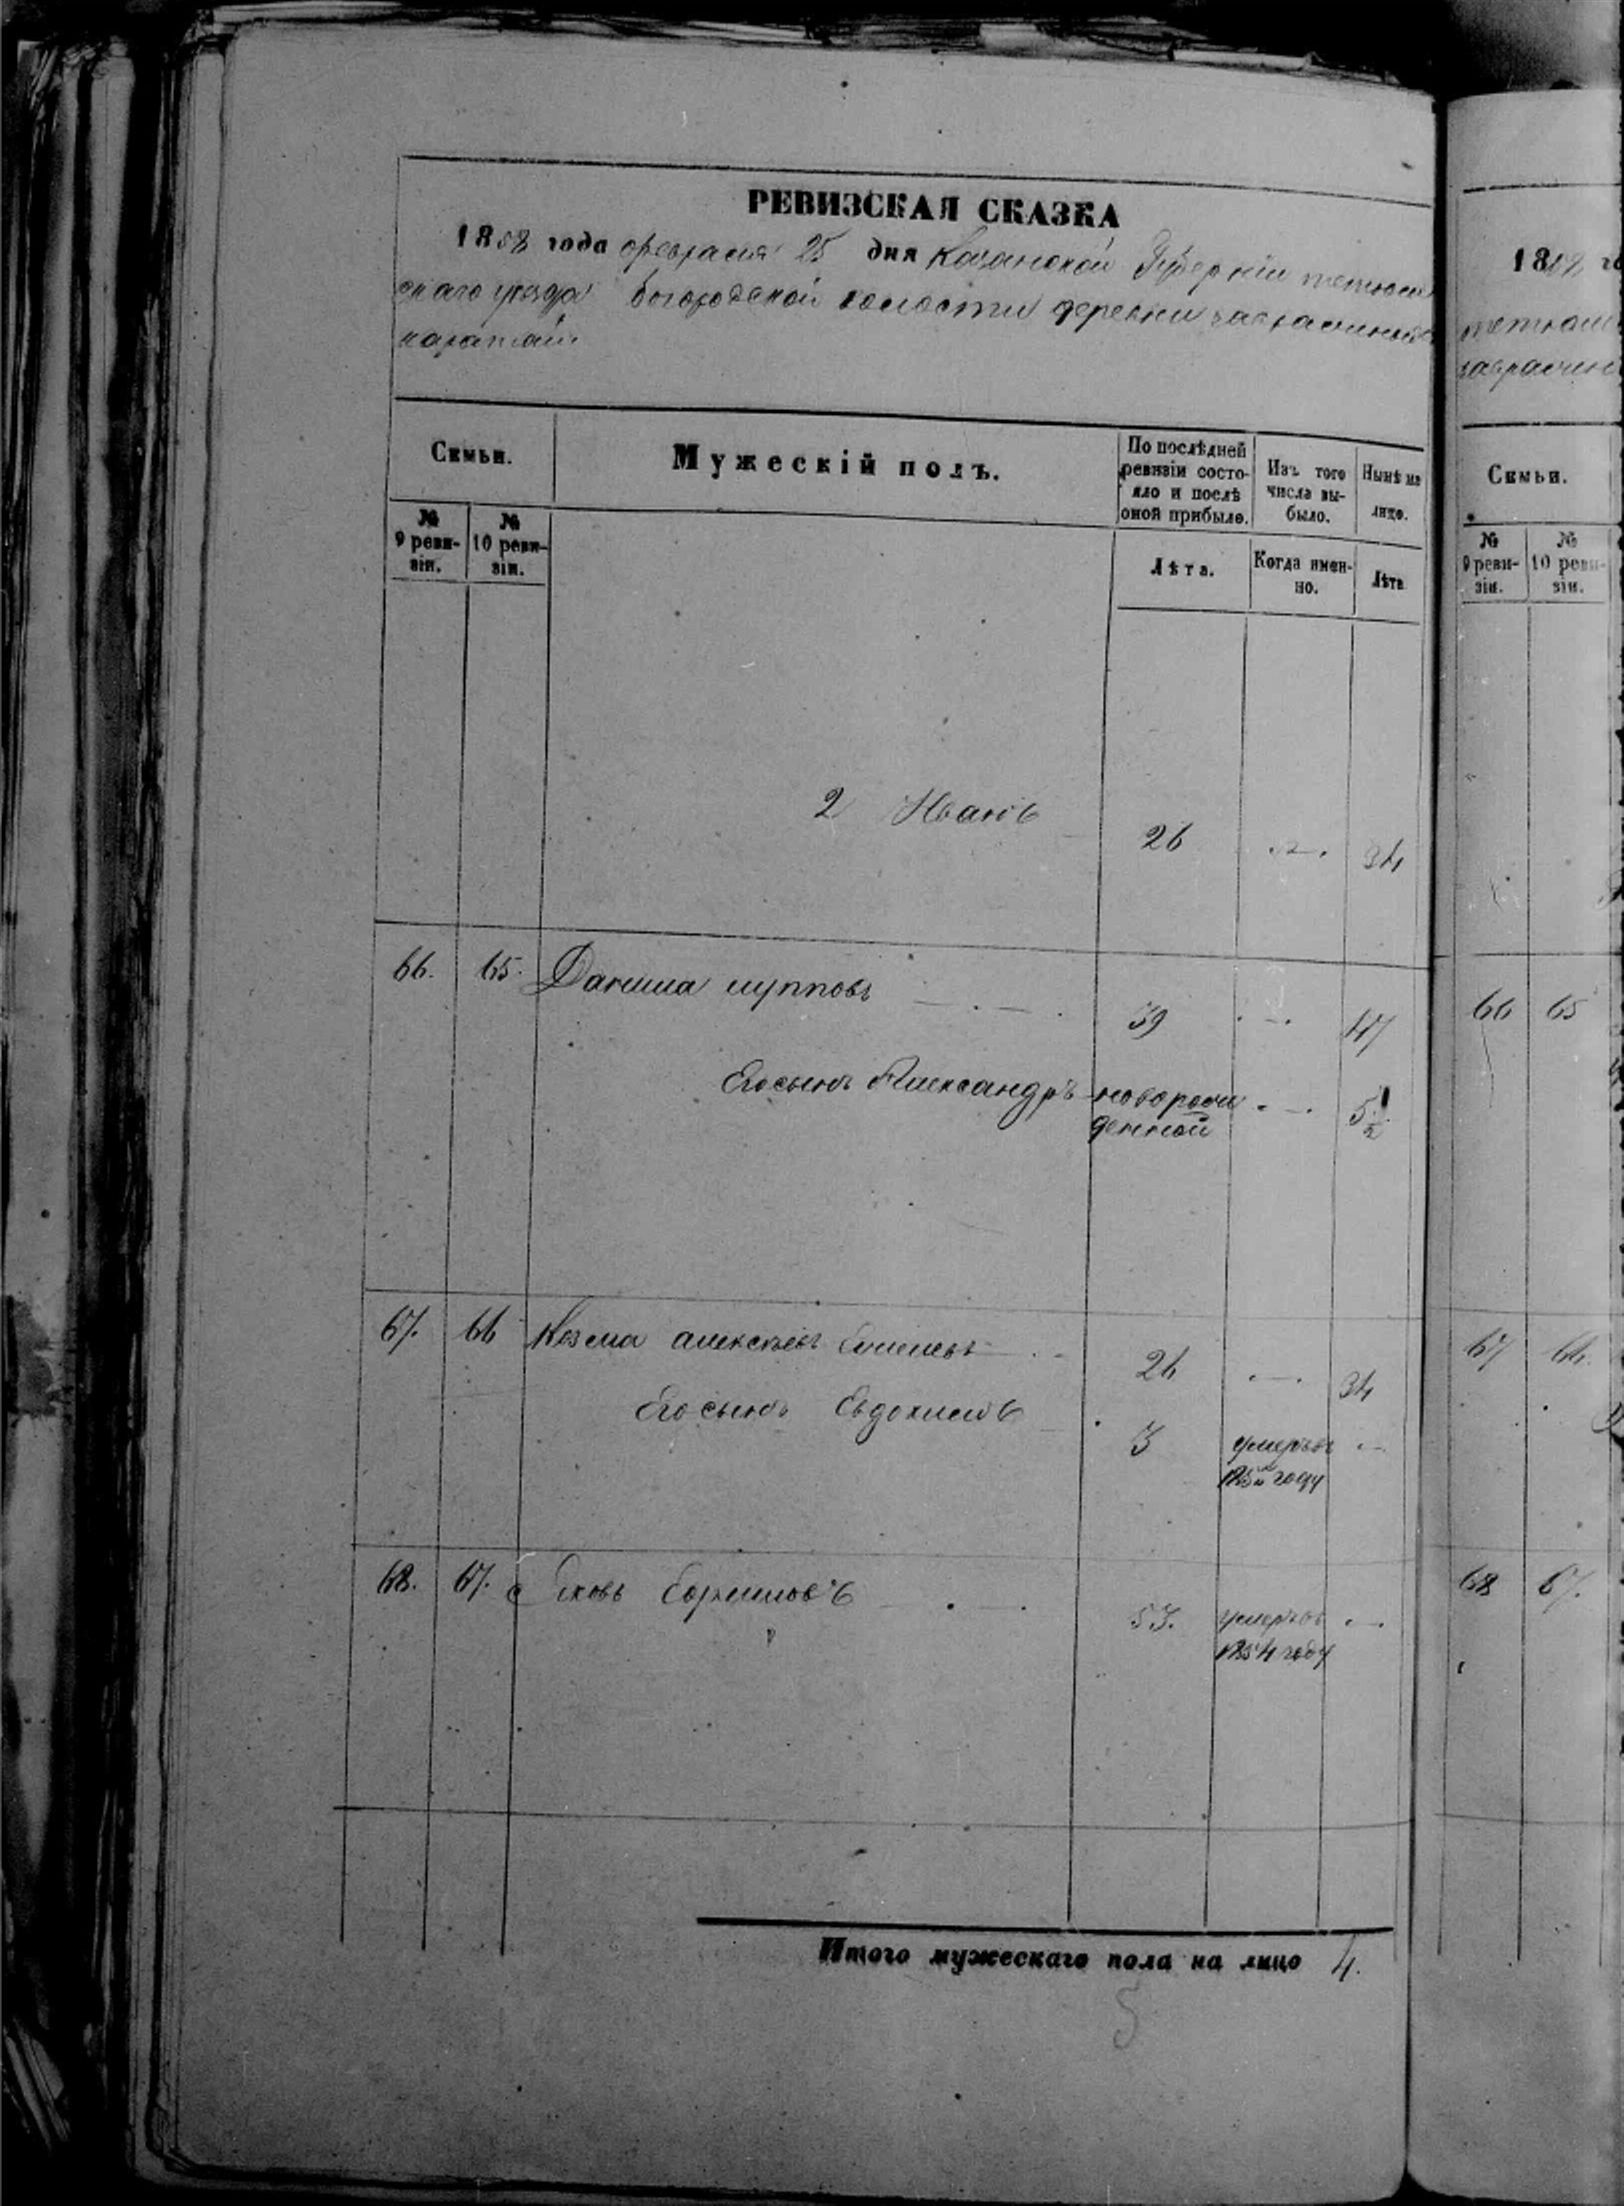 РЕВИЗСКАЯ СКАЗКА
1858 года февраля 25 дня Казанской Губернiи тетюш
скаго уезда богородской волости деревни
каратаи
Семьи.
Мужескiй полъ.
По послѣдней ревизiи состо-
яло и послѣ оной прибыло.
Изъ того числа вы-
было.
Нынѣ на лицо.
№ 9 реви-
зiи.
№ 10 реви-
зiи.
Лѣта.
Когда имен-
но.
Лѣта
2 Иванъ 26 34
66. 65. Данила 39 47
Его сынъ Александръ новорож
денной 5 1/2
67. 66 Козма алексѣевъ 26 34
Его сынъ Евдокимъ 3 умеръ въ
году
68. 67. Яковъ 53. умеръ въ
1854 году
Итого мужескаго пола на лицо 4.
5
18
тетюш
Семьи.
№ 9 реви-
зiи.
№ 10 реви-
зiи.
66 65
67 66.
68 67.